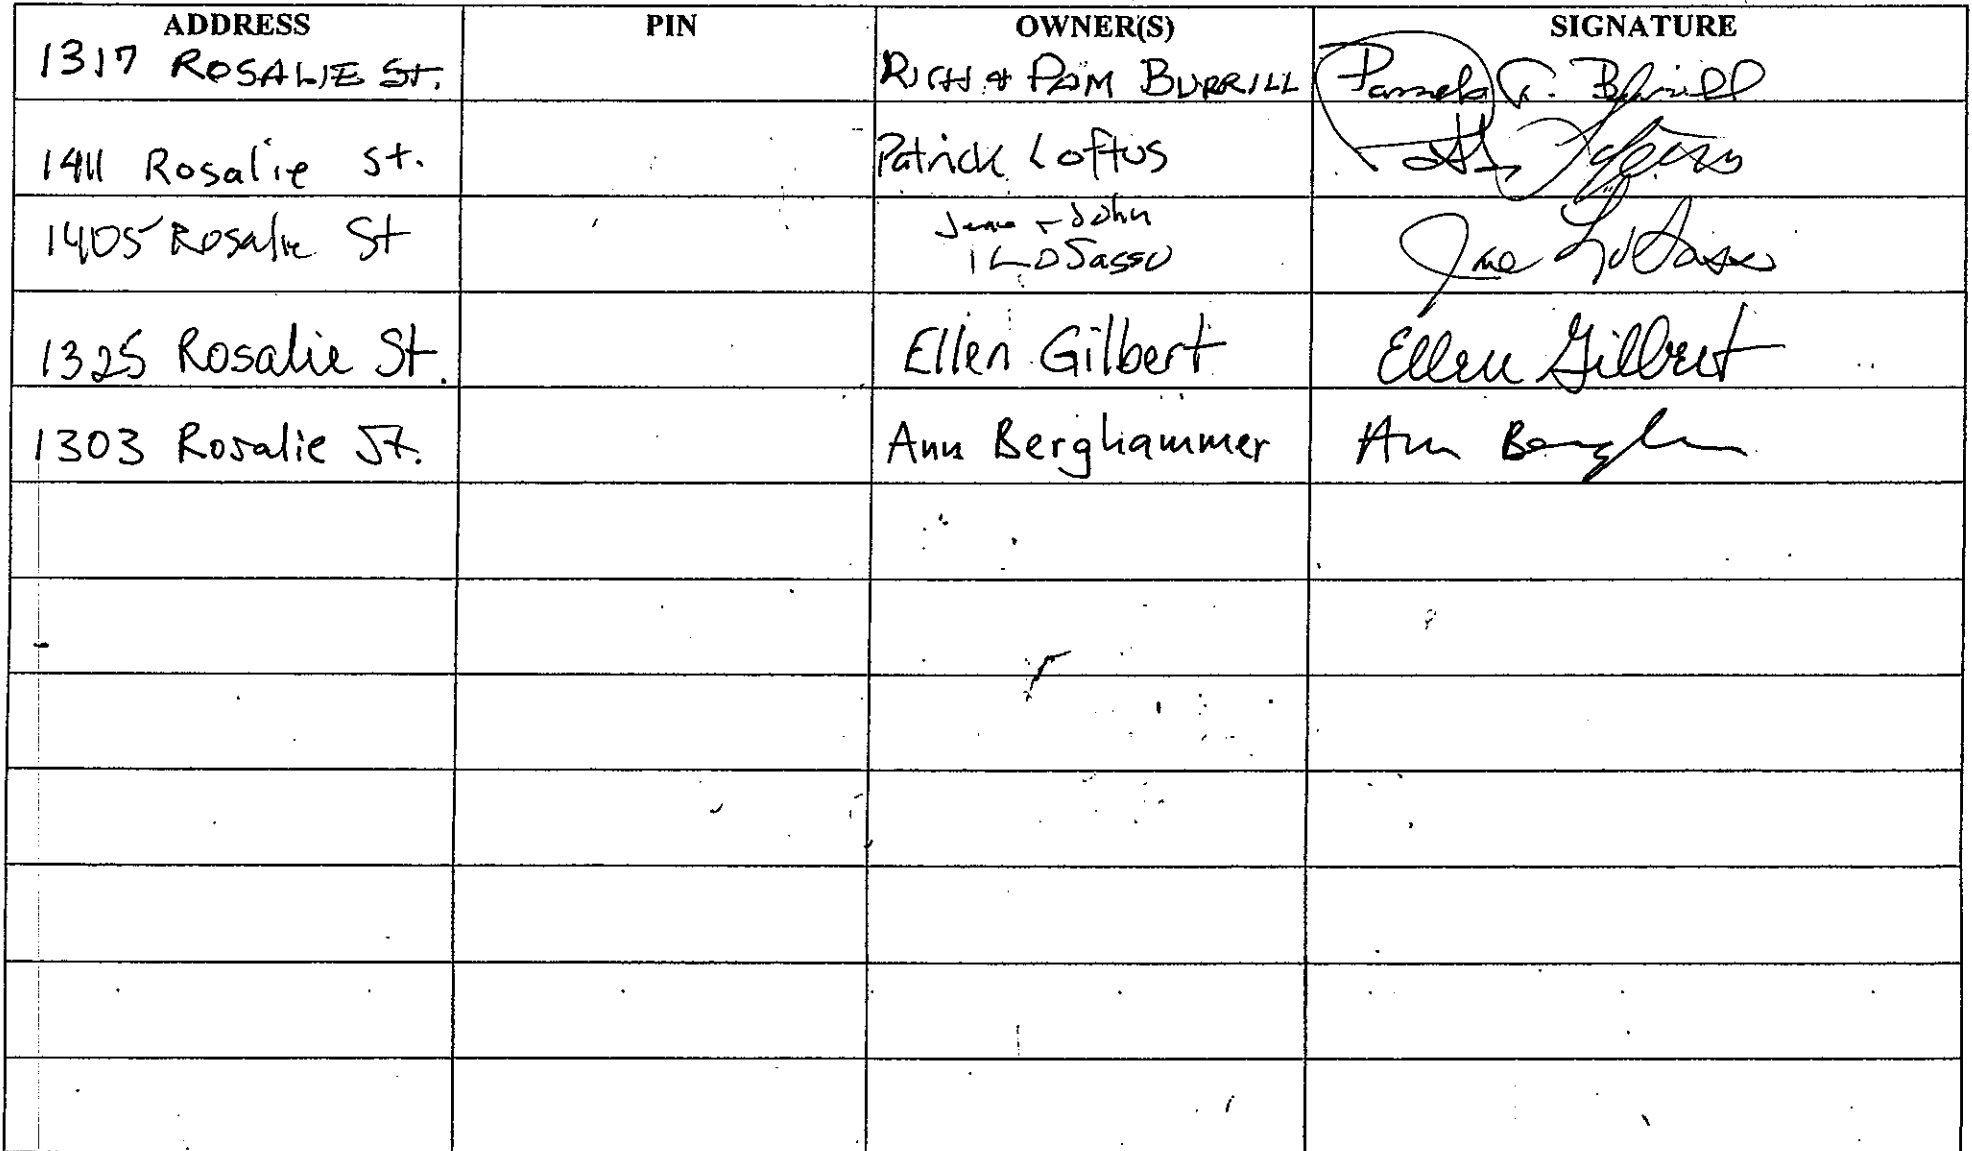 ADDRESS PIN OWNER(S) SIGNATURE
1317 ROSALIE ST. RICH & PAM BURRILL Pamela G. Burrill
1411 Rosalie St. Patrick Loftus
1405 Rosalie St John
LoSasso Jane LoSasso
1325 Rosalie St. Ellen Gilbert Ellen Gilbert
1303 Rosalie St. Ann Berghammer Ann